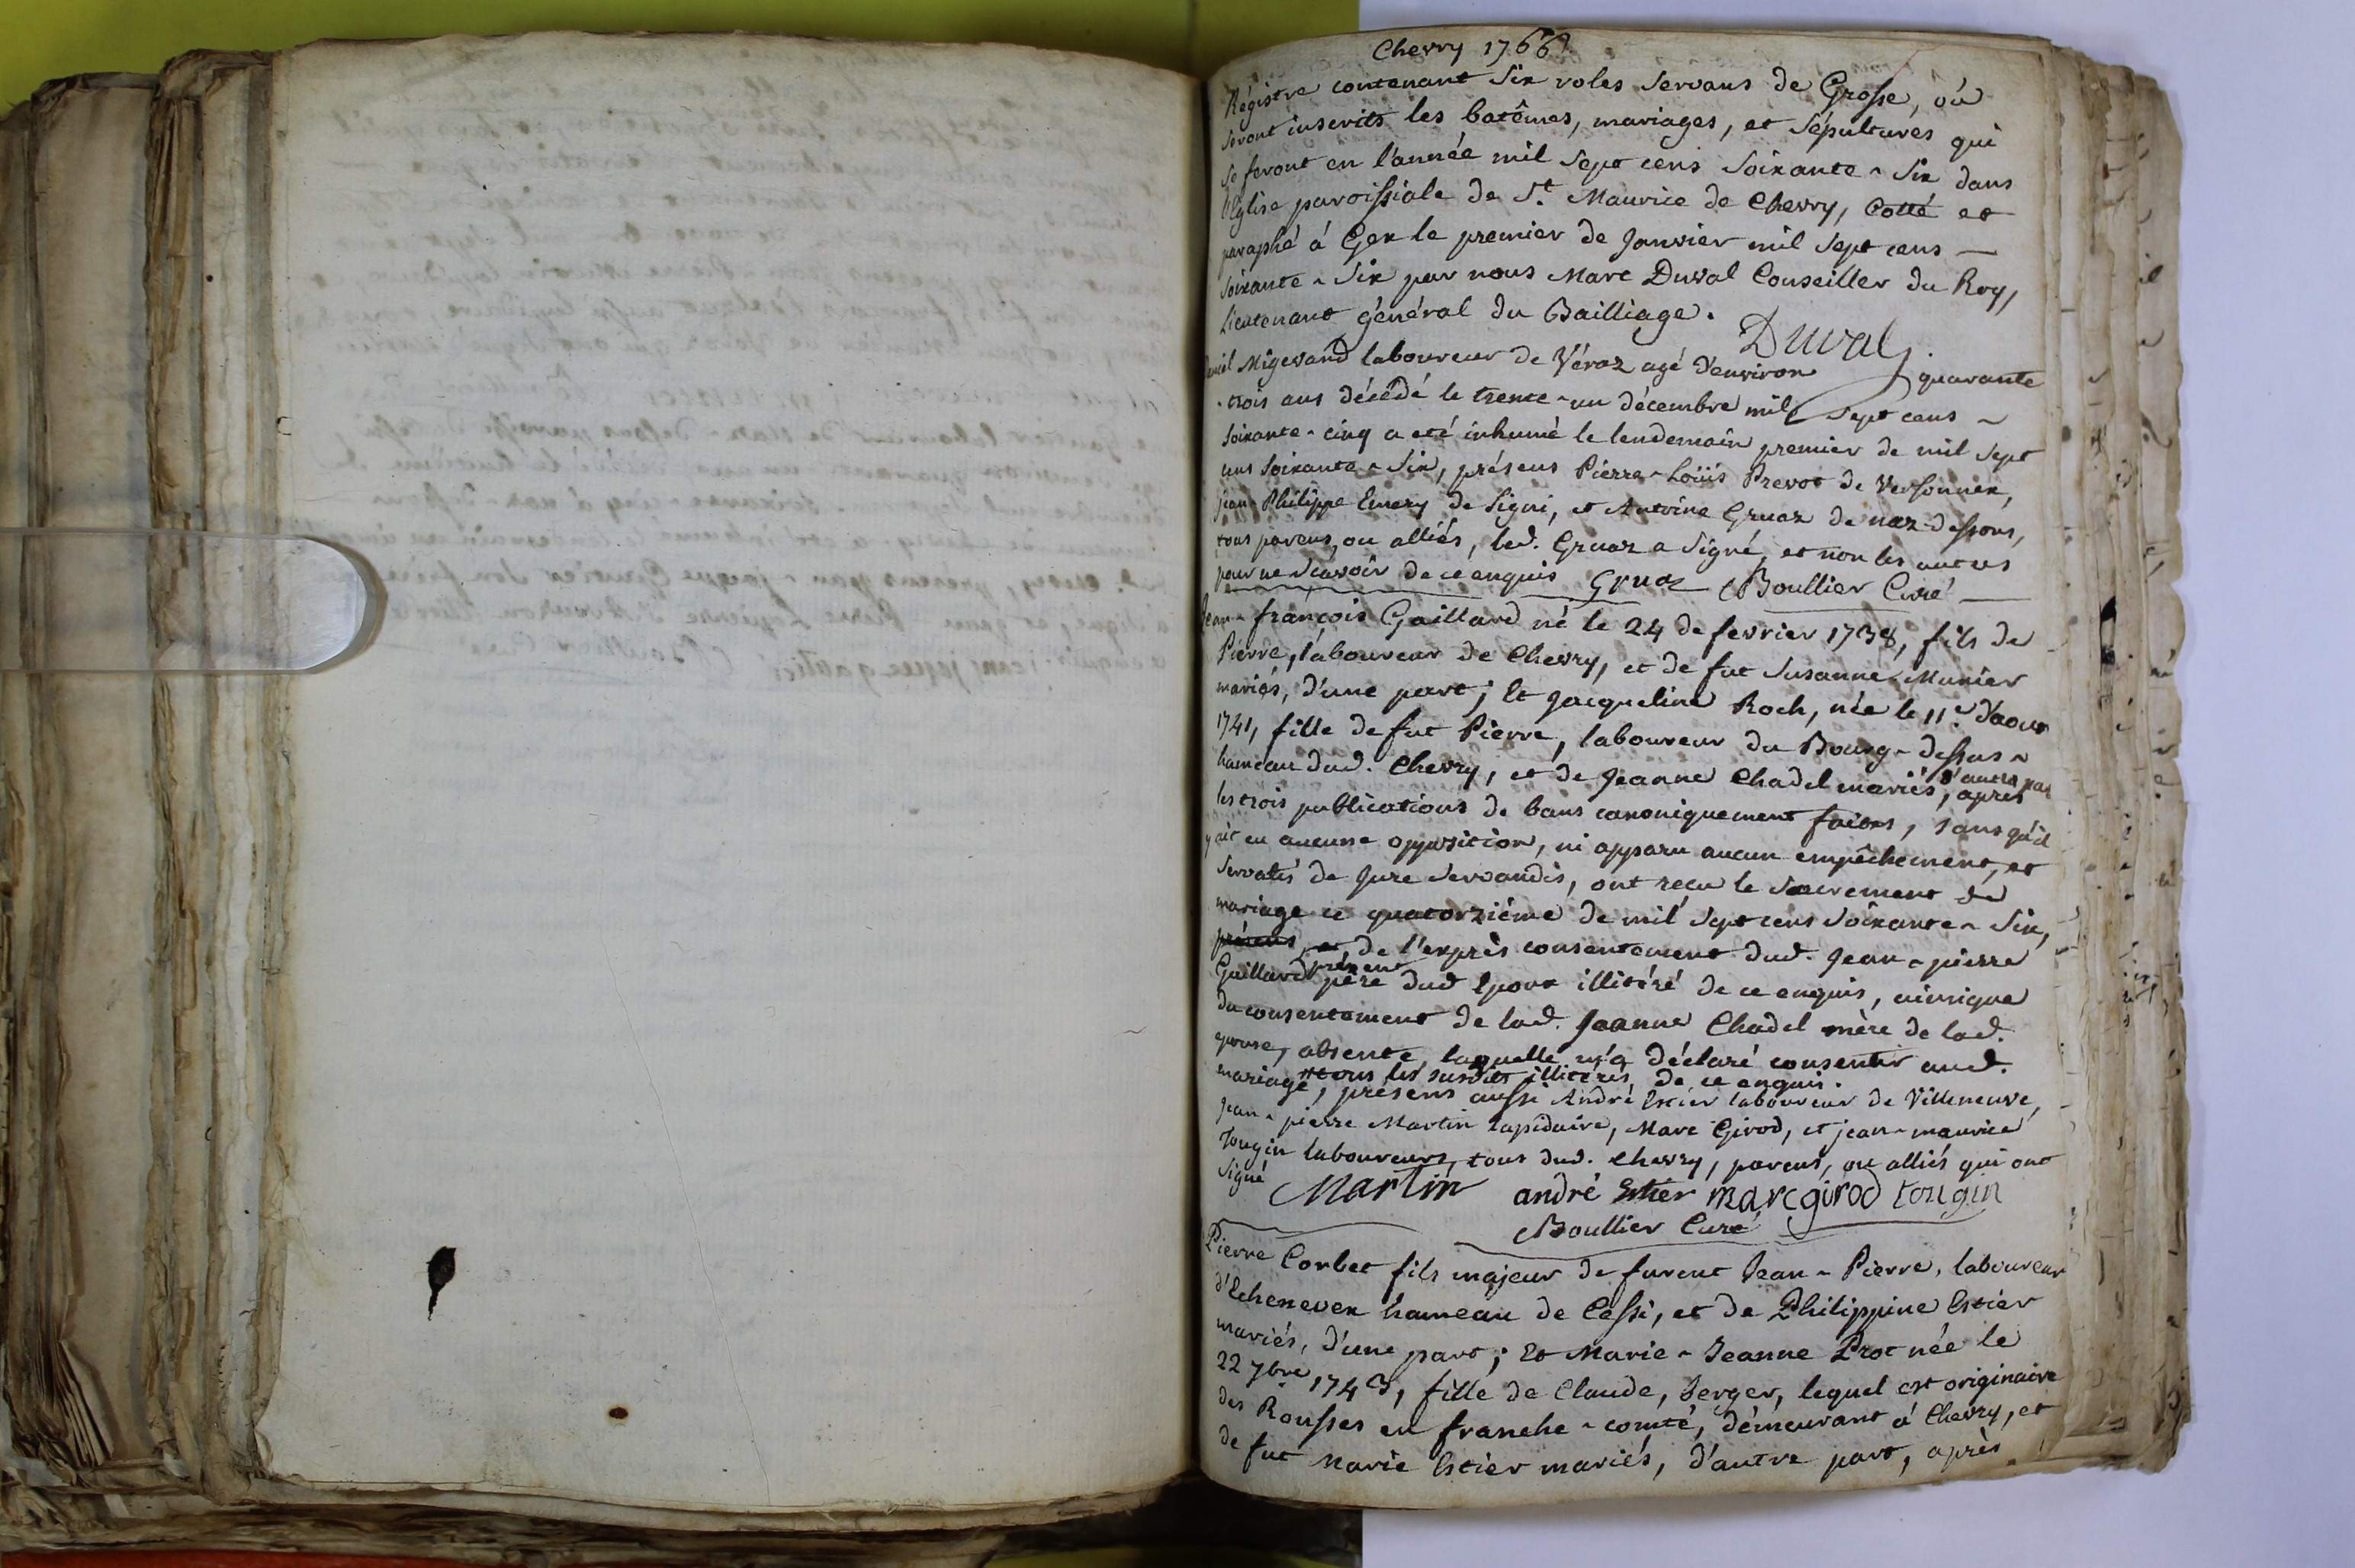 Chevry 1766
Régistre contenant Six roles Servans de Grosse, où
Seront inscrits les batêmes, mariages, et Sépultures qui
Se feront en l'année mil Sept cens Soixante-Six dans
l'Eglise paroissiale de St. Maurice de Chevry, Cotté et
paraphé á Gex le premier de Janvier mil Sept cens
Soixante-Six par nous Marc Duval Conseiller du Roy,
Lieutenant général du Bailliage.
Duval
Daniel Migerand laboureur de Véraz agé d'environ quarante
-trois ans décédé le trente-un décembre mil Sept cens
Soixante-cinq a eté inhumé le lendemain premier de mil Sept
cens Soixante-Six, présens Pierre-Loüis Prevot de Versonnex,
Jean-Philippe Emery de Signi, et Antoine Gruaz de naz-dessous,
tous parens, ou alliés, led. Gruaz a Signé, et non les autres
pour ne Sçavoir de ce enquis Gruaz Boullier Curé
Jean-françois Gaillard né le 24 de fevrier 1738, fils de
Pierre, laboureur de Chevry, et de fut Susanne Munier
mariés, d'une part; Et Jacqueline Roch, née le 11e d'aout
1741, fille de fut Pierre, laboureur du Bourg-dessus
hameau dud. Chevry, et de Jeanne Chadel mariés, d'autre par
après
les trois publications de bans canoniquement faites, sans qu'il
y ait eu aucune opposition, ni apparu aucun empêchement, et
Servatis de Jure Servandis, ont reçu le Sacrement de
mariage ce quatorziéme de mil Sept cens Soixante-Six,
présens, et de l'exprès consentement dud. Jean-pierre
Gaillard présent père dud Epoux illitéré de ce enquis, ainsique
du consentement de lad. Jeanne Chadel mère de lad.
epouse, absente, laquelle m'a déclaré consentir aud.
et tous les susdits illitérés de ce enquis.
mariage, présens aussi André Estier laboureur de Villeneuve,
Jean-pierre Martin lapidaire, Marc Girod, et jean-maurice
Tougin laboureurs, tous dud. Chevry, parens, ou alliés qui ont
Signé Martin andré Estier marc girod tougin
Boullier Curé
Pierre Corbet fils majeur de furent Jean-Pierre, laboureur
d'Echenevex hameau de Cessi, et de Philippine Estier
mariés, d'une part; Et Marie-Jeanne Prot née le
22 7bre 1743, fille de Claude, berger, lequel est originaire
des Rousses en franche-comté, démeurant á Chevry, et
de fut Marie Estier mariés, d'autre part, après